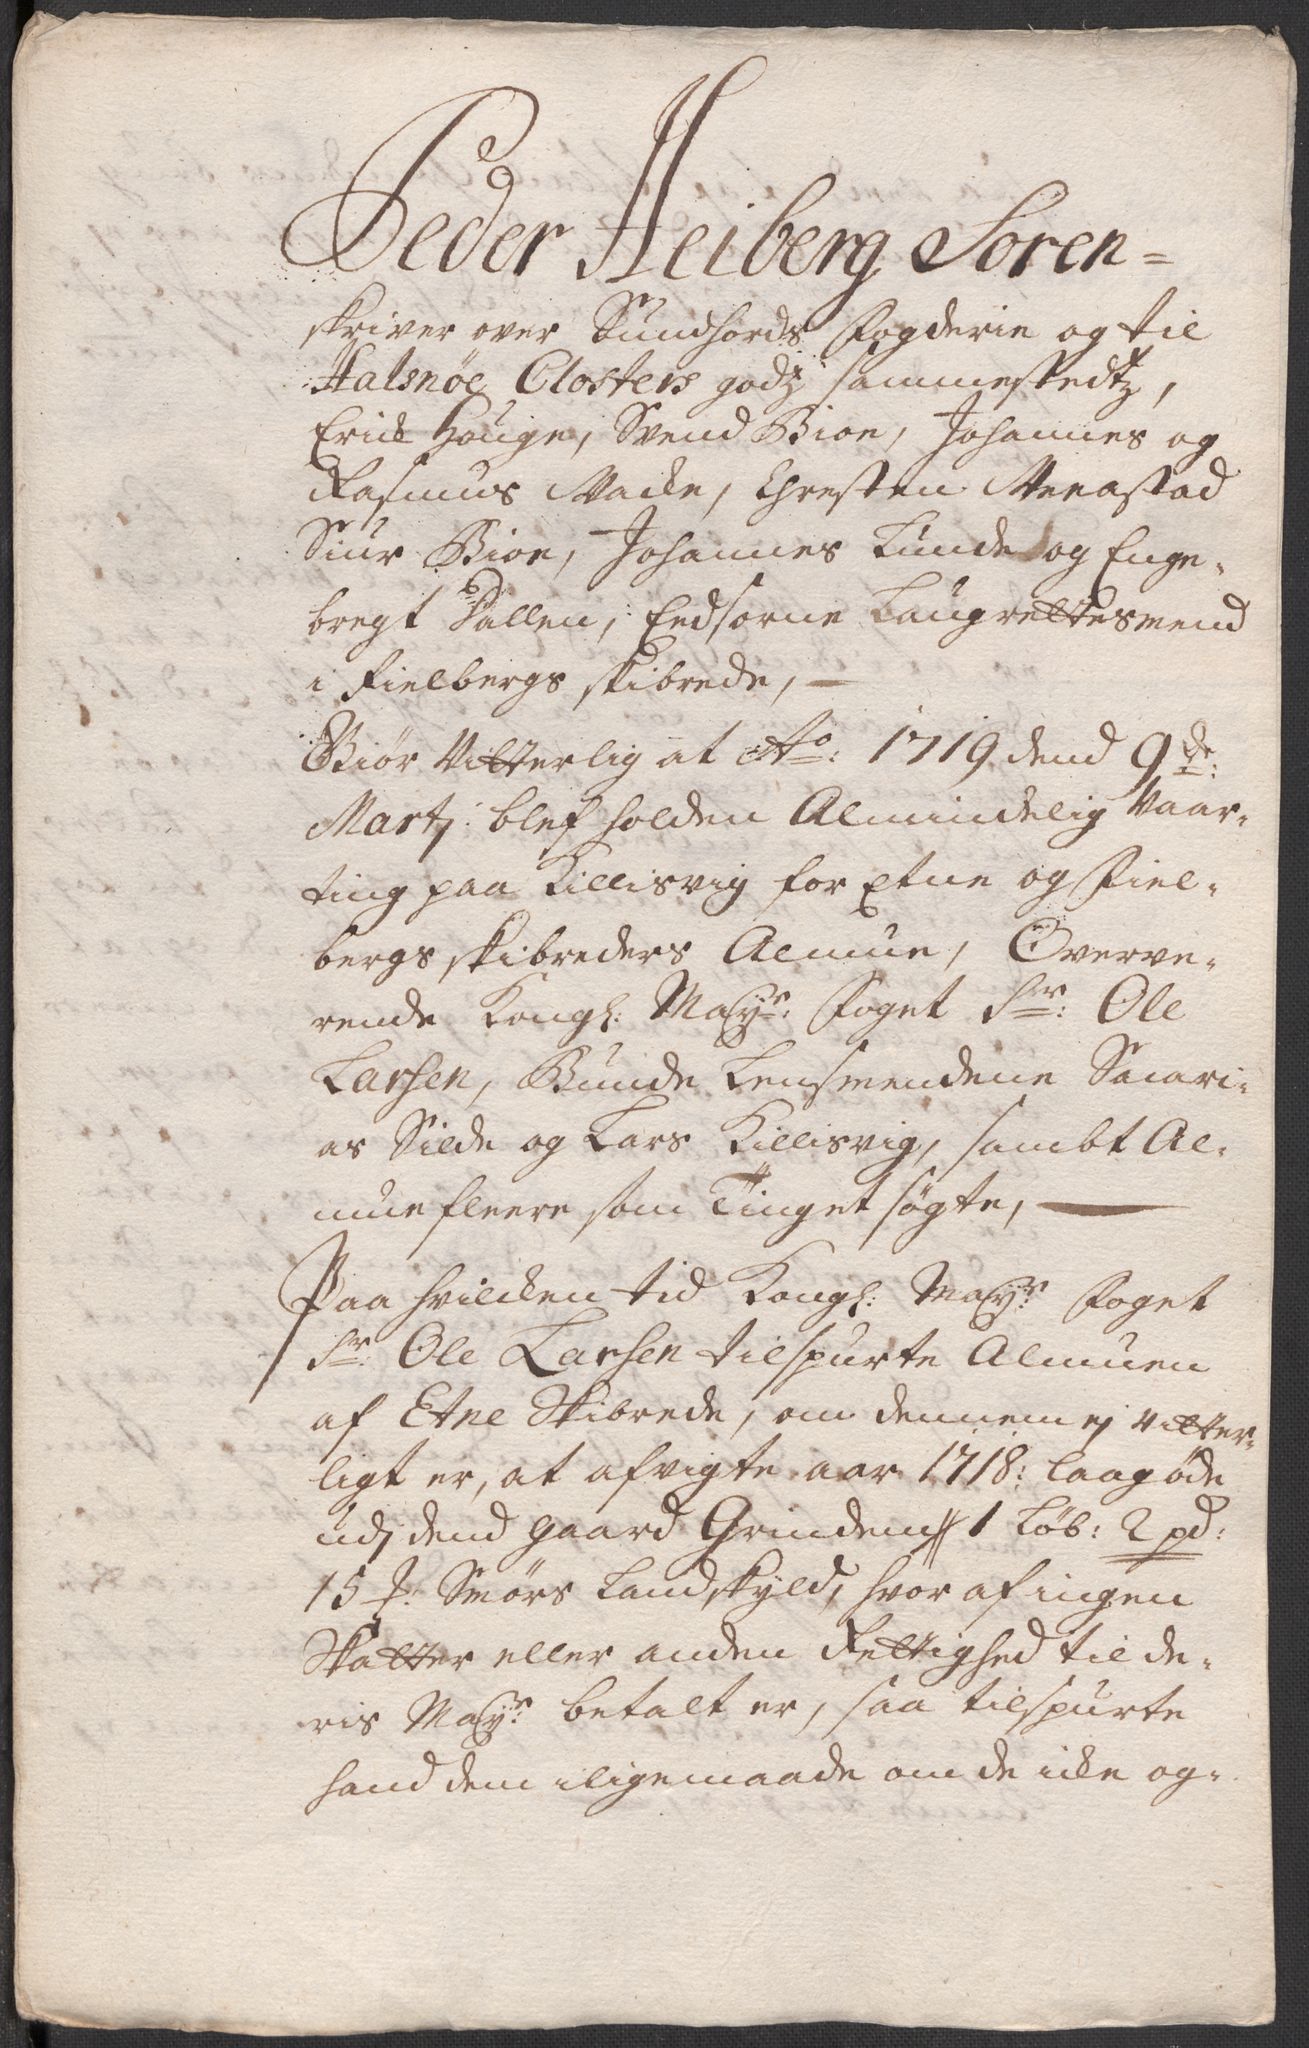 Peder Heiberg Soren=
skriver over Sundhords fogderie og til
Halsnöe Closters godtz sammestedtz,
Erick Houge, Svend Bioe, Johannes og
Rasmus Wacke, Christen Meenstad
Siur Bioe, Johannes Lunde og Enge-
bregt Dallen, Eedsorne Laugrettesmend
i Fielbergs skibrede, —
Giör Vitterlig at Ao: 1719 dend 9de:
Martj: blef holden Almindelig Vaar-
ting paa Killisvig for Etne og Fiel-
bergs skibreders Almue, Overve-
rende Kongl: Mayts: foget Sr: Ole
Larsen, Bunde Lensmendene Sacari-
as Silde og Lars Killisvig, sambt Al-
mue fleere som Tinget søgte, —
Paa hvilcken tid Kongl: Mayts: foget
Sr: Ole Larsen tilspurte Almuen
af Etne Skibrede, om dennem ej vitter-
ligt er, at afvigte aar 1718: laag øde
udj dend gaard Grinden 1 Løb: 2 pd:
15 ₰: Smörs Landskyld, hvor af ingen
Skatter eller anden Rettighed til de-
ris Mayts: betalt er, saa tilspurte
hand dem iligemaade om de icke og-